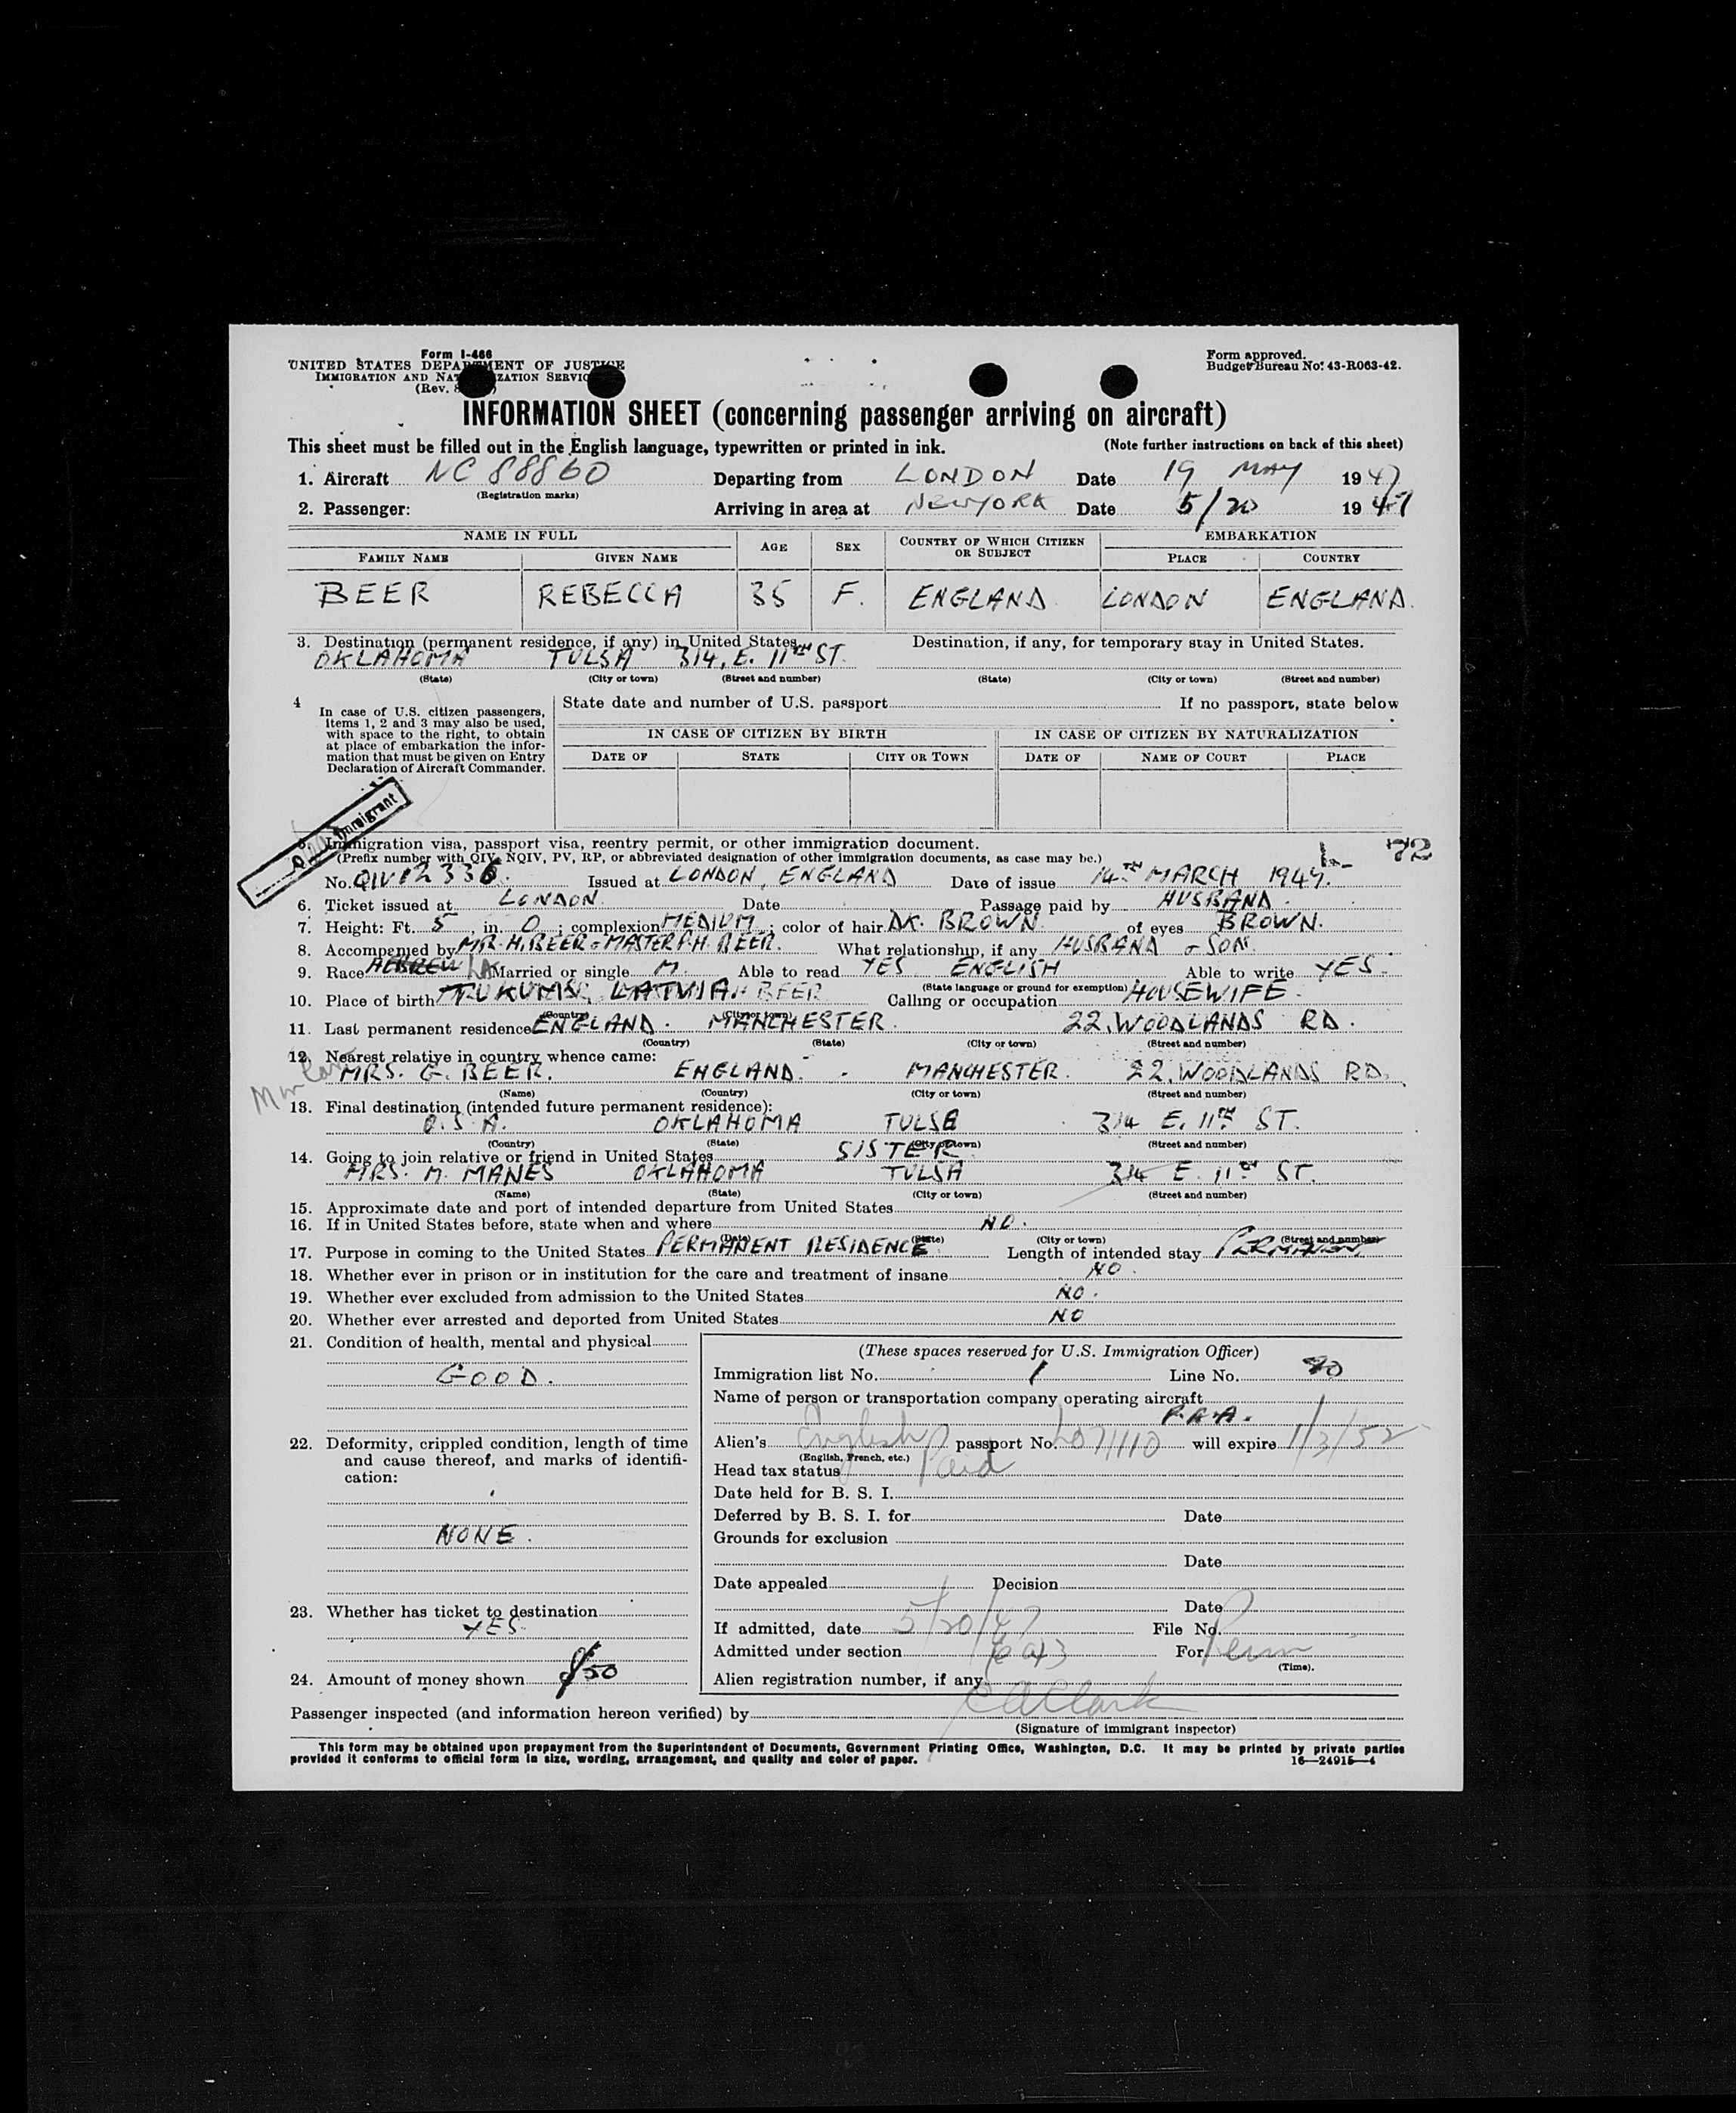 Form I-466
UNITED STATES DEPARTMENT OF JUSTICE
IMMIGRATION AND NATURALIZATION SERVICE
(Rev.
Form approved.
Budget Bureau No. 43-R063-42.
INFORMATION SHEET (concerning passenger arriving on aircraft)
This sheet must be filled out in the English language, typewritten or printed in ink. (Note further instructions on back of this sheet)
1. Aircraft NC 88860 Departing from LONDON Date 19 MAY 1947
(Registration marks)
2. Passenger: Arriving in area at NEW YORK Date 5/20 1947
NAME IN FULL AGE SEX COUNTRY OF WHICH CITIZEN OR SUBJECT EMBARKATION
FAMILY NAME GIVEN NAME PLACE COUNTRY
BEER REBECCA 35 F. ENGLAND LONDON ENGLAND.
3. Destination (permanent residence, if any) in United States Destination, if any, for temporary stay in United States.
OKLAHOMA TULSA 314, E. 11TH ST.
(State) (City or town) (Street and number) (State) (City or town) (Street and number)
4 In case of U.S. citizen passengers, items 1, 2 and 3 may also be used, with space to the right, to obtain at place of embarkation the information that must be given on Entry Declaration of Aircraft Commander.
State date and number of U.S. passport If no passport, state below
IN CASE OF CITIZEN BY BIRTH IN CASE OF CITIZEN BY NATURALIZATION
DATE OF STATE CITY OR TOWN DATE OF NAME OF COURT PLACE
Immigrant
5. Immigration visa, passport visa, reentry permit, or other immigration document.
(Prefix number with QIV, NQIV, PV, RP, or abbreviated designation of other immigration documents, as case may be.) 72
No. QIV 12336. Issued at LONDON, ENGLAND Date of issue 14TH MARCH 1947.
6. Ticket issued at LONDON. Date Passage paid by HUSBAND.
7. Height: Ft. 5, in. 0; complexion MEDIUM; color of hair DK. BROWN of eyes BROWN.
8. Accompanied by MR. H. BEER & MASTER P.H. BEER. What relationship, if any HUSBAND & SON.
9. Race HEBREW Married or single M. Able to read YES ENGLISH Able to write YES.
(State language or ground for exemption)
10. Place of birth TUKUMS, LATVIA. BEER Calling or occupation HOUSEWIFE.
(Country) (City or town)
11. Last permanent residence ENGLAND. MANCHESTER. 22, WOODLANDS RD.
(Country) (State) (City or town) (Street and number)
12. Nearest relative in country whence came:
MRS. G. BEER. ENGLAND. MANCHESTER. 22, WOODLANDS RD.
(Name) (Country) (City or town) (Street and number)
13. Final destination (intended future permanent residence):
U.S.A. OKLAHOMA TULSA 314 E. 11TH ST.
(Country) (State) (City or town) (Street and number)
14. Going to join relative or friend in United States SISTER
MRS. M. MANES OKLAHOMA TULSA 314 E. 11TH ST.
(Name) (State) (City or town) (Street and number)
15. Approximate date and port of intended departure from United States
16. If in United States before, state when and where NO.
(Date) (State) (City or town) (Street and number)
17. Purpose in coming to the United States PERMANENT RESIDENCE Length of intended stay PERMANENT
18. Whether ever in prison or in institution for the care and treatment of insane NO.
19. Whether ever excluded from admission to the United States NO.
20. Whether ever arrested and deported from United States NO
21. Condition of health, mental and physical
GOOD.
22. Deformity, crippled condition, length of time and cause thereof, and marks of identification:
NONE.
23. Whether has ticket to destination
YES
24. Amount of money shown $50
(These spaces reserved for U.S. Immigration Officer)
Immigration list No. 1 Line No.
Name of person or transportation company operating aircraft
P.A.A.
Alien's English passport No. L071110 will expire 1/3/52
(English, French, etc.)
Head tax status Paid
Date held for B. S. I.
Deferred by B. S. I. for Date
Grounds for exclusion
Date
Date appealed Decision
Date
If admitted, date 5/20/47 File No.
Admitted under section For Perm
(Time).
Alien registration number, if any
Passenger inspected (and information hereon verified) by C A Clark
(Signature of immigrant inspector)
This form may be obtained upon prepayment from the Superintendent of Documents, Government Printing Office, Washington, D.C. It may be printed by private parties
provided it conforms to official form in size, wording, arrangement, and quality and color of paper. 16—24915-4